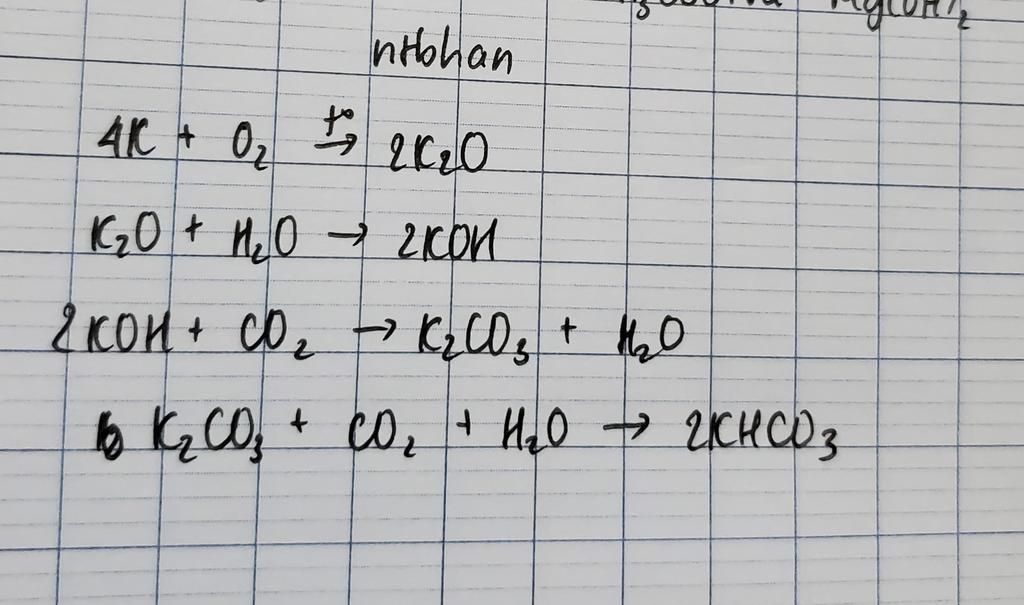 Mg(OH)₂
nHohan
4K + O₂ t°→ 2K₂O
K₂O + H₂O → 2KOH
2KOH + CO₂ → K₂CO₃ + H₂O
K₂CO₃ + CO₂ + H₂O → 2KHCO₃